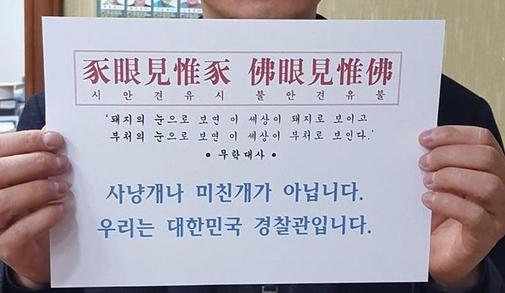 豕眼見惟豕 佛眼見惟佛
시안견유시 불안견유불
'돼지의 눈으로 보면 이 세상이 돼지로 보이고
부처의 눈으로 보면 이 세상이 부처로 보인다.'
• 무학대사 •
사냥개나 미친개가 아닙니다.
우리는 대한민국 경찰관입니다.